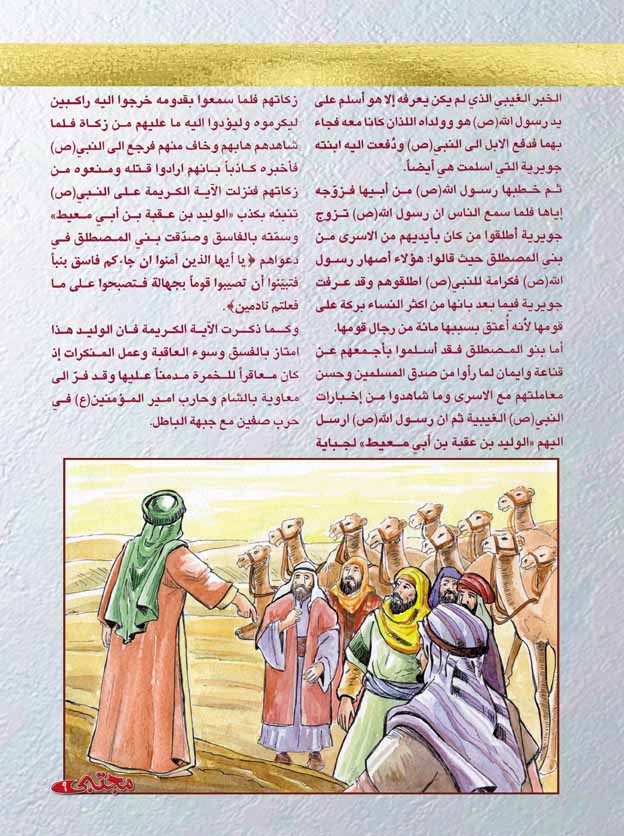 الخبر الغيبي الذي لم يكن يعرفه إلا هو أسلم على
يد رسول الله(ص) هو وولداه اللذان كانا معه فجاء
بهما فدفع الابل الى النبي(ص) ودُفعت اليه ابنته
جويرية التي اسلمت هي أيضاً.
ثم خطبها رسول الله(ص) من أبيها فزوّجه
إياها فلما سمع الناس ان رسول الله(ص) تزوج
جويرية أطلقوا من كان بأيديهم من الاسرى من
بني المصطلق حيث قالوا: هؤلاء أصهار رسول
الله(ص) فكرامة للنبي(ص) اطلقوهم وقد عرفت
جويرية فيما بعد بانها من اكثر النساء بركة على
قومها لأنه أُعتق بسببها مائة من رجال قومها.
أما بنو المصطلق فقد أسلموا بأجمعهم عن
قناعة وايمان لما رأوا من صدق المسلمين وحسن
معاملتهم مع الاسرى وما شاهدوا من إخبارات
النبي(ص) الغيبية ثم ان رسول الله(ص) ارسل
اليهم «الوليد بن عقبة بن أبي معيط» لجباية
زكاتهم فلما سمعوا بقدومه خرجوا اليه راكبين
ليكرموه وليؤدوا اليه ما عليهم من زكاة فلما
شاهدهم هابهم وخاف منهم فرجع الى النبي(ص)
فأخبره كاذباً بانهم ارادوا قتله ومنعوه من
زكاتهم فنزلت الآية الكريمة على النبي(ص)
تنبئه بكذب «الوليد بن عقبة بن أبي معيط»
وسمّته بالفاسق وصدّقت بني المصطلق في
دعواهم ﴿يا أيها الذين آمنوا ان جاءكم فاسق بنبأ
فتبيّنوا أن تصيبوا قوماً بجهالة فتصبحوا على ما
فعلتم نادمين﴾.
وكما ذكرت الآية الكريمة فان الوليد هذا
امتاز بالفسق وسوء العاقبة وعمل المنكرات إذ
كان معاقراً للخمرة مدمناً عليها وقد فرّ الى
معاوية بالشام وحارب امير المؤمنين(ع) في
حرب صفين مع جبهة الباطل.
مجتبى ٩